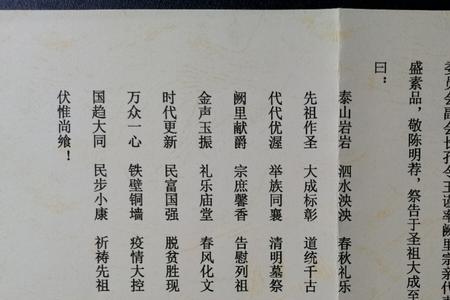 委员会副会长孔令
盛素品，敬陈明荐，祭告于圣祖大成至
曰：
泰山岩岩 泗水泱泱 春秋礼乐
先祖作圣 大成标彰 道统千古
代代优渥 举族同襄 清明墓祭
阙里献爵 宗庶馨香 告慰列祖
金声玉振 礼乐庙堂 春风化文
时代更新 民富国强 脱贫胜现
万众一心 铁壁铜墙 疫情大控
国趋大同 民步小康 祈祷先祖
伏惟尚飨！